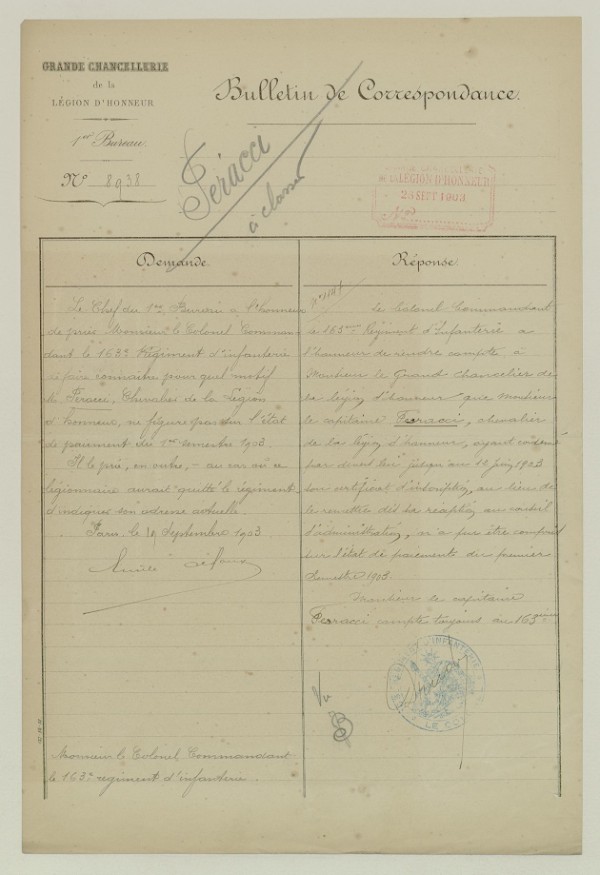 GRANDE CHANCELLERIE
de la
LÉGION D'HONNEUR
1er Bureau
N° 8938
Bulletin de Correspondance.
Feracci
à classer
LÉGION D'HONNEUR
25 SEPT 1903
N°
Demande.
Le Chef du 1er Bureau a l'honneur
de prier Monsieur le Colonel Comman
dant le 163e Régiment d'infanterie
de faire connaître pour quel motif
Mr Feracci, Chevalier de la Légion
d'honneur, ne figure pas sur l'état
de paiement du 1er semestre 1903.
Il le prie, en outre, - au cas où ce
légionnaire aurait quitté le régiment -
d'indiquer son adresse actuelle.
Paris le 19 Septembre 1903
Monsieur le Colonel Commandant
le 163e régiment d'infanterie.
Réponse.
Le Colonel Commandant
le 163ème Régiment d'Infanterie a
l'honneur de rendre compte à
Monsieur le Grand Chancelier de
la légion d'honneur que Monsieur
le capitaine Feracci, chevalier
de la légion d'honneur, ayant conservé
par devers lui jusqu'au 11 Juin 1903
son certificat d'inscription, au lieu de
le remettre dès sa réception au conseil
d'administration, n'a pu être compris
sur l'état de paiements du premier
Semestre 1903.
Monsieur le capitaine
Feracci compte toujours au 163ème
Vu